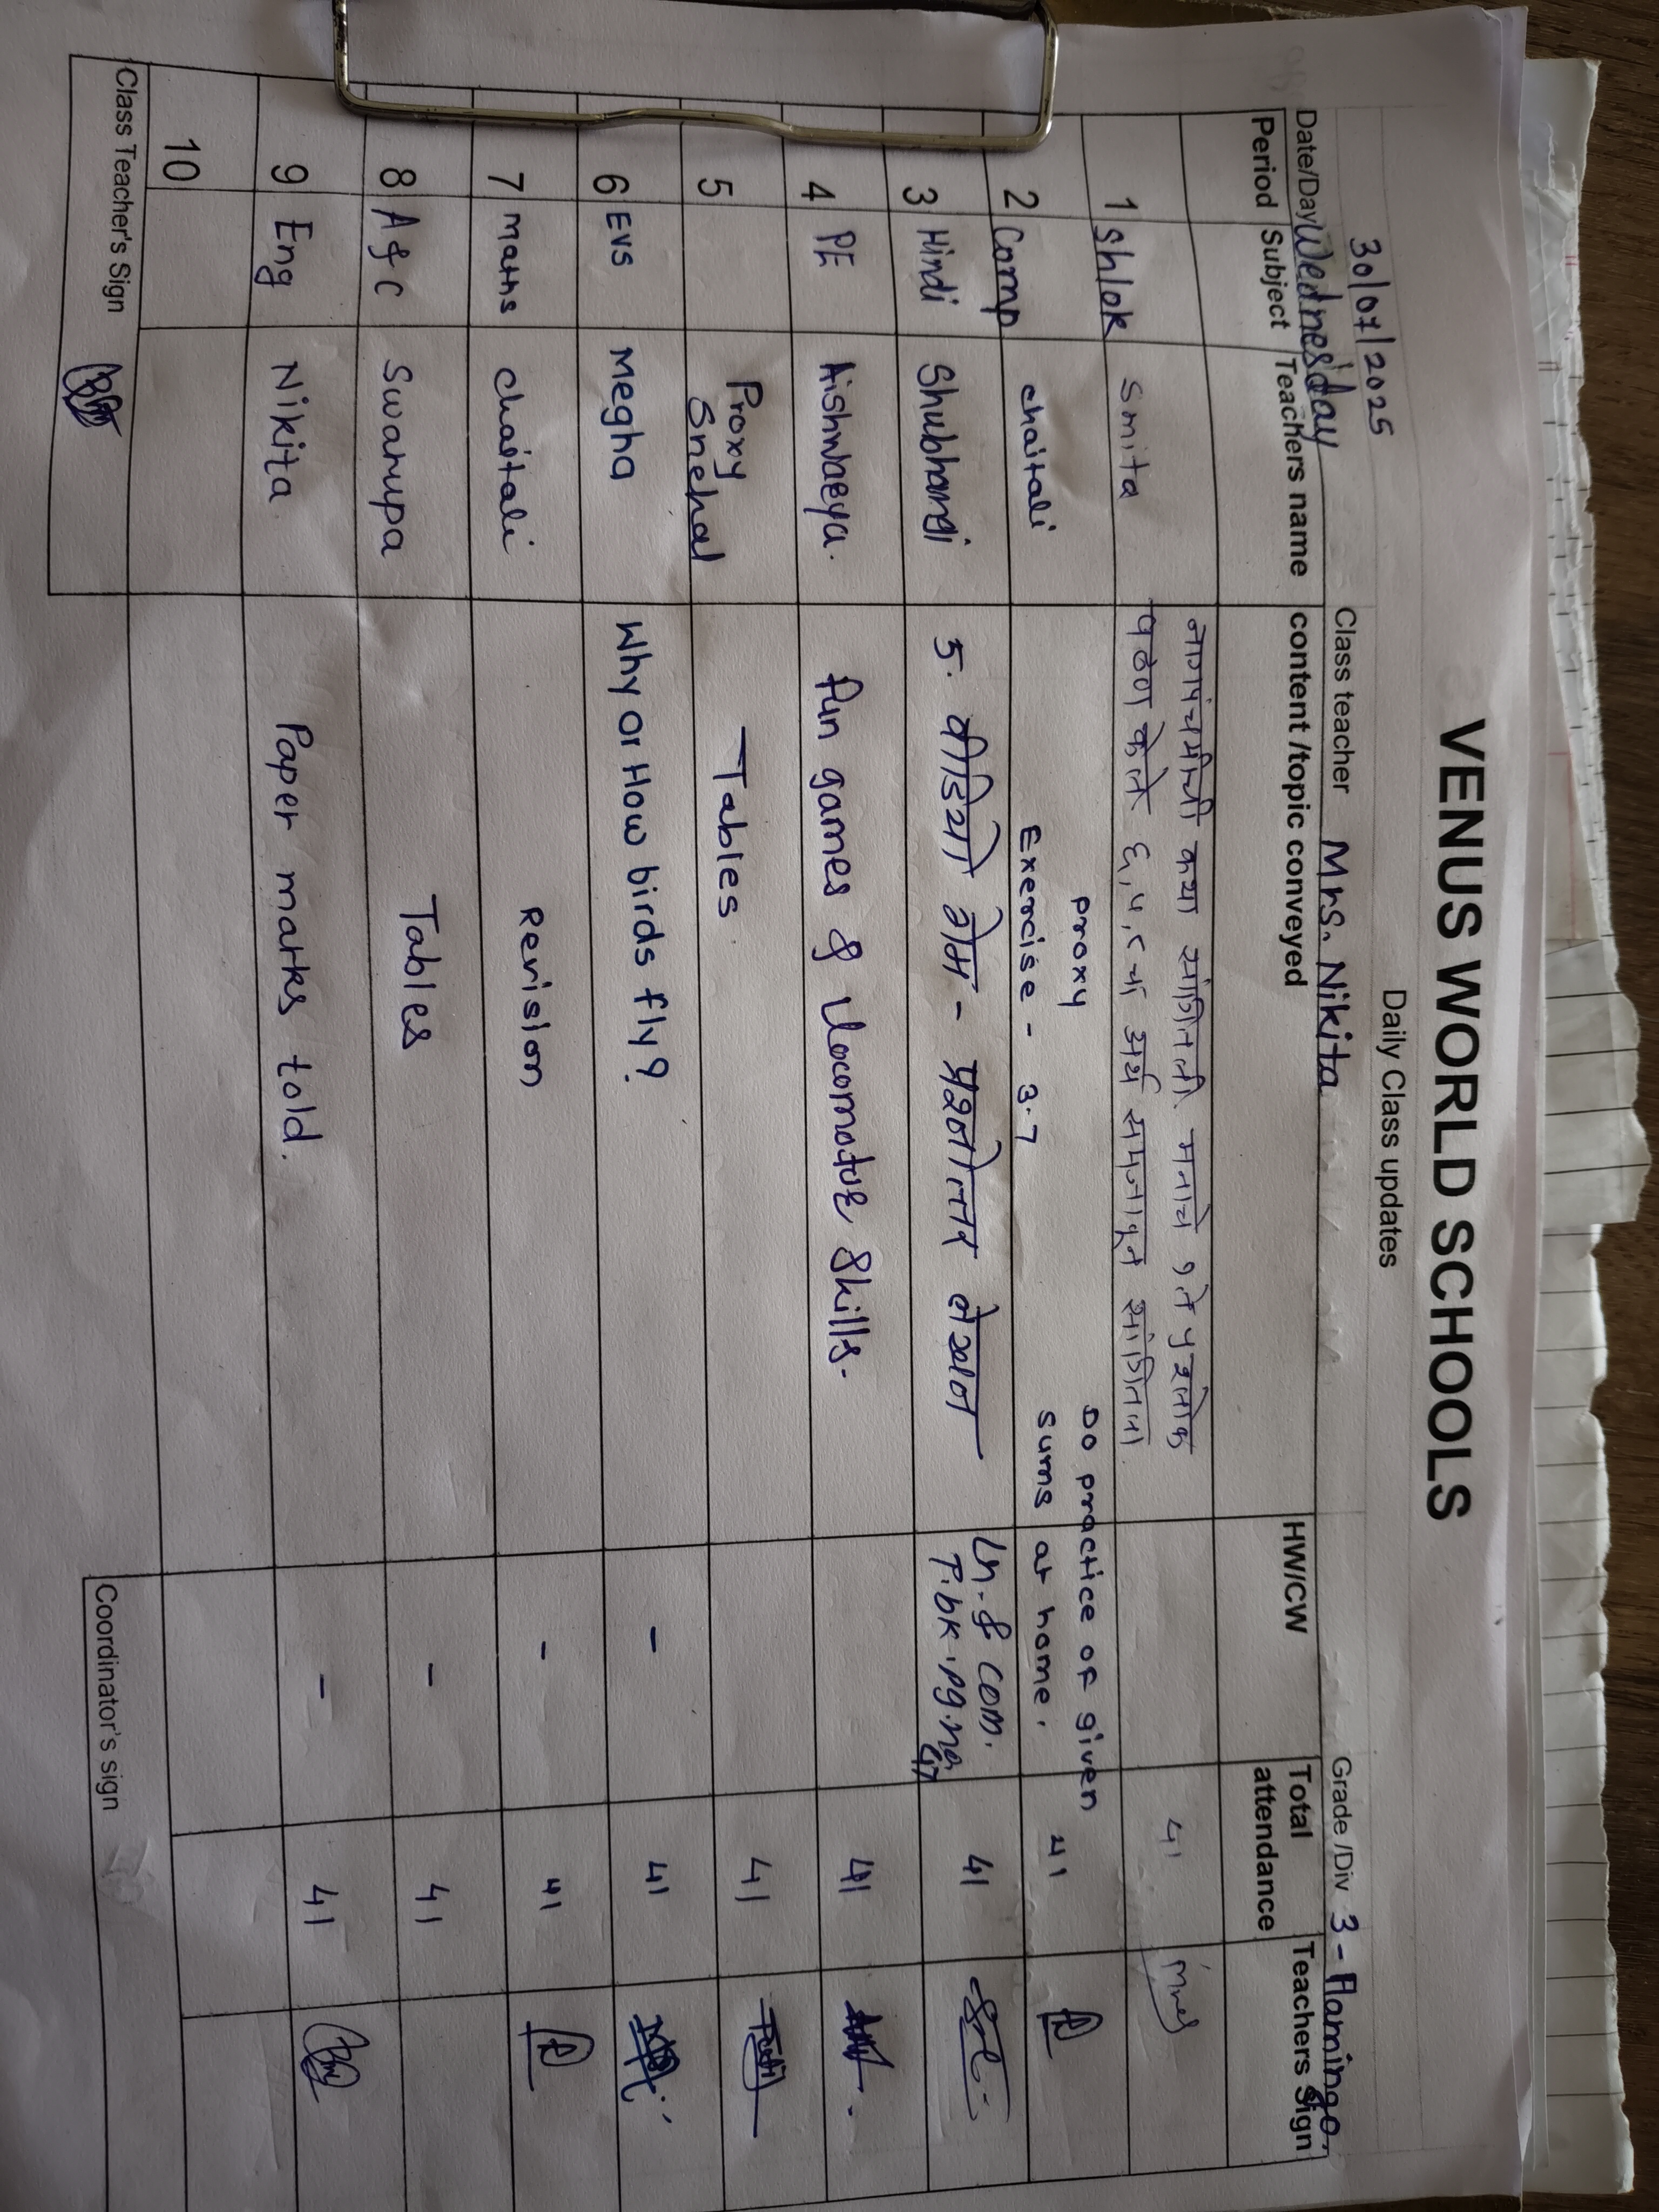 VENUS WORLD SCHOOLS
Daily Class updates
30/07/2025
Date/Day Wednesday Class teacher Mrs. Nikita Grade /Div 3 - Flamingo.
Period Subject Teachers name content /topic conveyed HW/CW Total attendance Teachers Sign
नागपंचमीची कथा सांगितली. मनाचे १ ते ५ श्लोक
1 Shlok Smita पठण केले ६, ७, ८ चा अर्थ समजावून सांगितला 41
proxy Do practice of given
2 Comp chaitali Exercise - 3.7 sums at home. 41
3 Hindi Shubhangi 5. वीडियो गेम - प्रश्नोत्तर लेखन Ln. & com. T.bk.pg.no. 47 41
4 PE Aishwarya. fun games & locomotive skills. 41
5 Proxy Snehal Tables 41
6 EVS Megha Why or How birds fly? - 41
7 maths chaitali Revision - 41
8 A & C Swarupa Tables - 41
9 Eng Nikita Paper marks told. - 41
10
Class Teacher's Sign Coordinator's sign